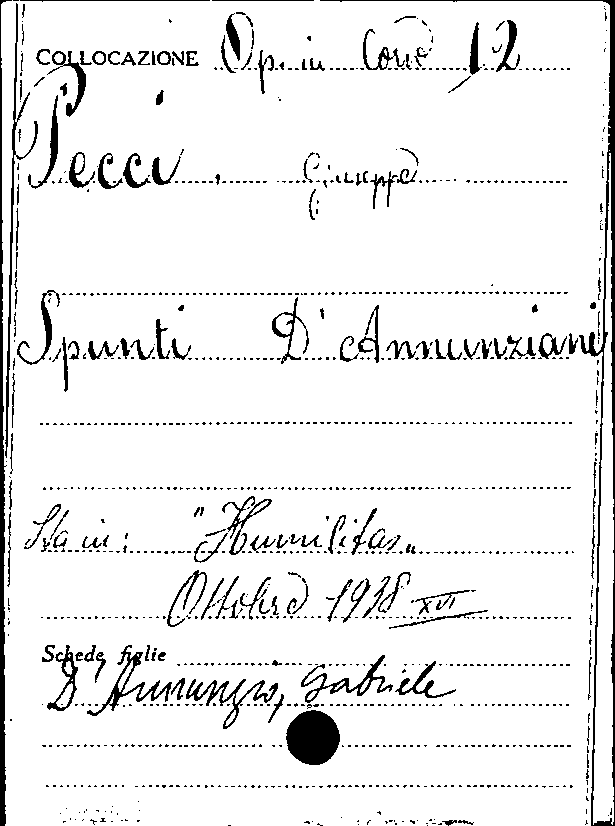 COLLOCAZIONE Op. in Corso 12
Pecci. Giuseppe
Spunti D'Annunziani
Sta in: "Humilitas"
Ottobre 1938 XVI
Schede figlie
D'Annunzio, Gabriele